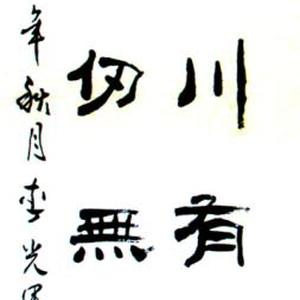 川有
仞無
年秋月李光